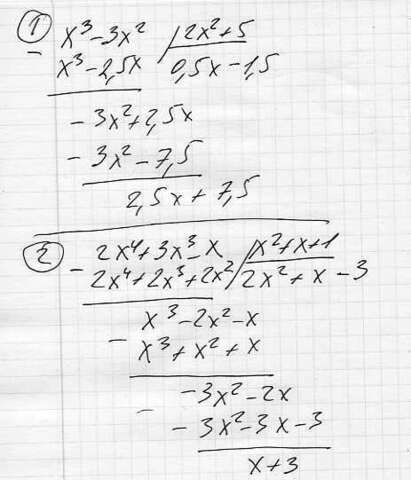 ① x³-3x² | 2x²+5
- x³-2,5x 0,5x-1,5
-3x²+2,5x
-3x²-7,5
2,5x+7,5
② 2x⁴+3x³-x | x²+x+1
- 2x⁴+2x³+2x² 2x²+x-3
x³-2x²-x
- x³+x²+x
-3x²-2x
- -3x²-3x-3
x+3